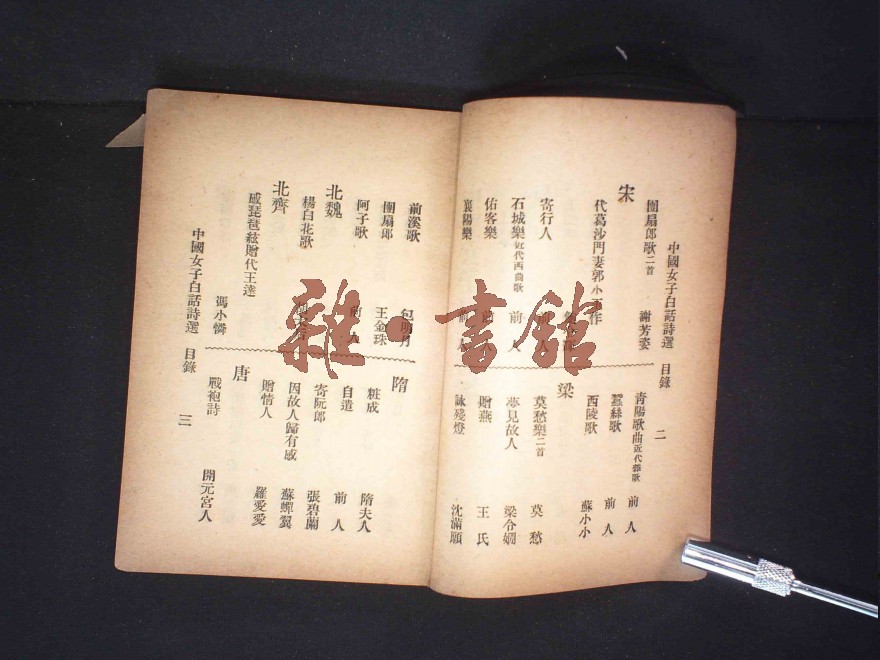 中國女子白話詩選 目錄 二
團扇郎歌二首 謝芳姿
宋
代葛沙門妻郭小玉作
寄行人 前人
石城樂近代西曲歌 前人
估客樂 前
襄陽樂 前人
青陽歌曲近代雜歌 前人
蠶絲歌 前人
西陵歌 蘇小小
梁
莫愁樂二首 莫愁
夢見故人 梁令嫺
贈燕 王氏
詠殘燈 沈滿願
前溪歌 包明月
團扇郎 王金珠
阿子歌 前人
北魏
楊白花歌
北齊
感琵琶絃贈代王達 馮小憐
隋
粧成 隋夫人
自遣 前人
寄阮郎 張碧蘭
因故人歸有感 蘇蟬翼
贈情人 羅愛愛
唐
戰袍詩 開元宮人
中國女子白話詩選 目錄 三
雜·書館